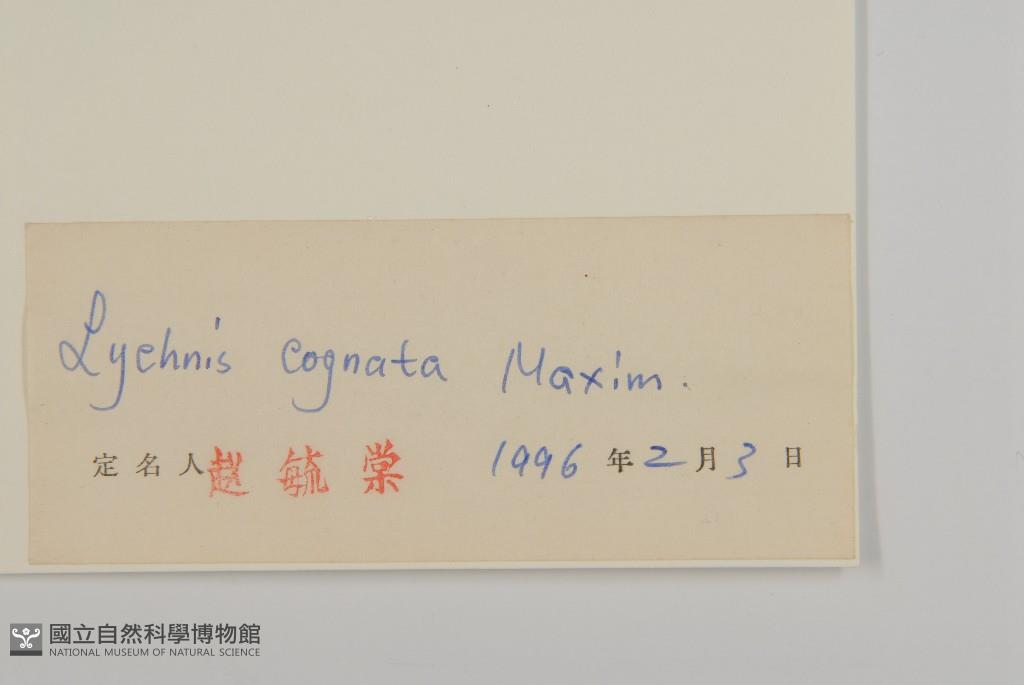 Lychnis cognata Maxim.
定名人 赵毓棠 1996年2月3日
國立自然科學博物館
NATIONAL MUSEUM OF NATURAL SCIENCE